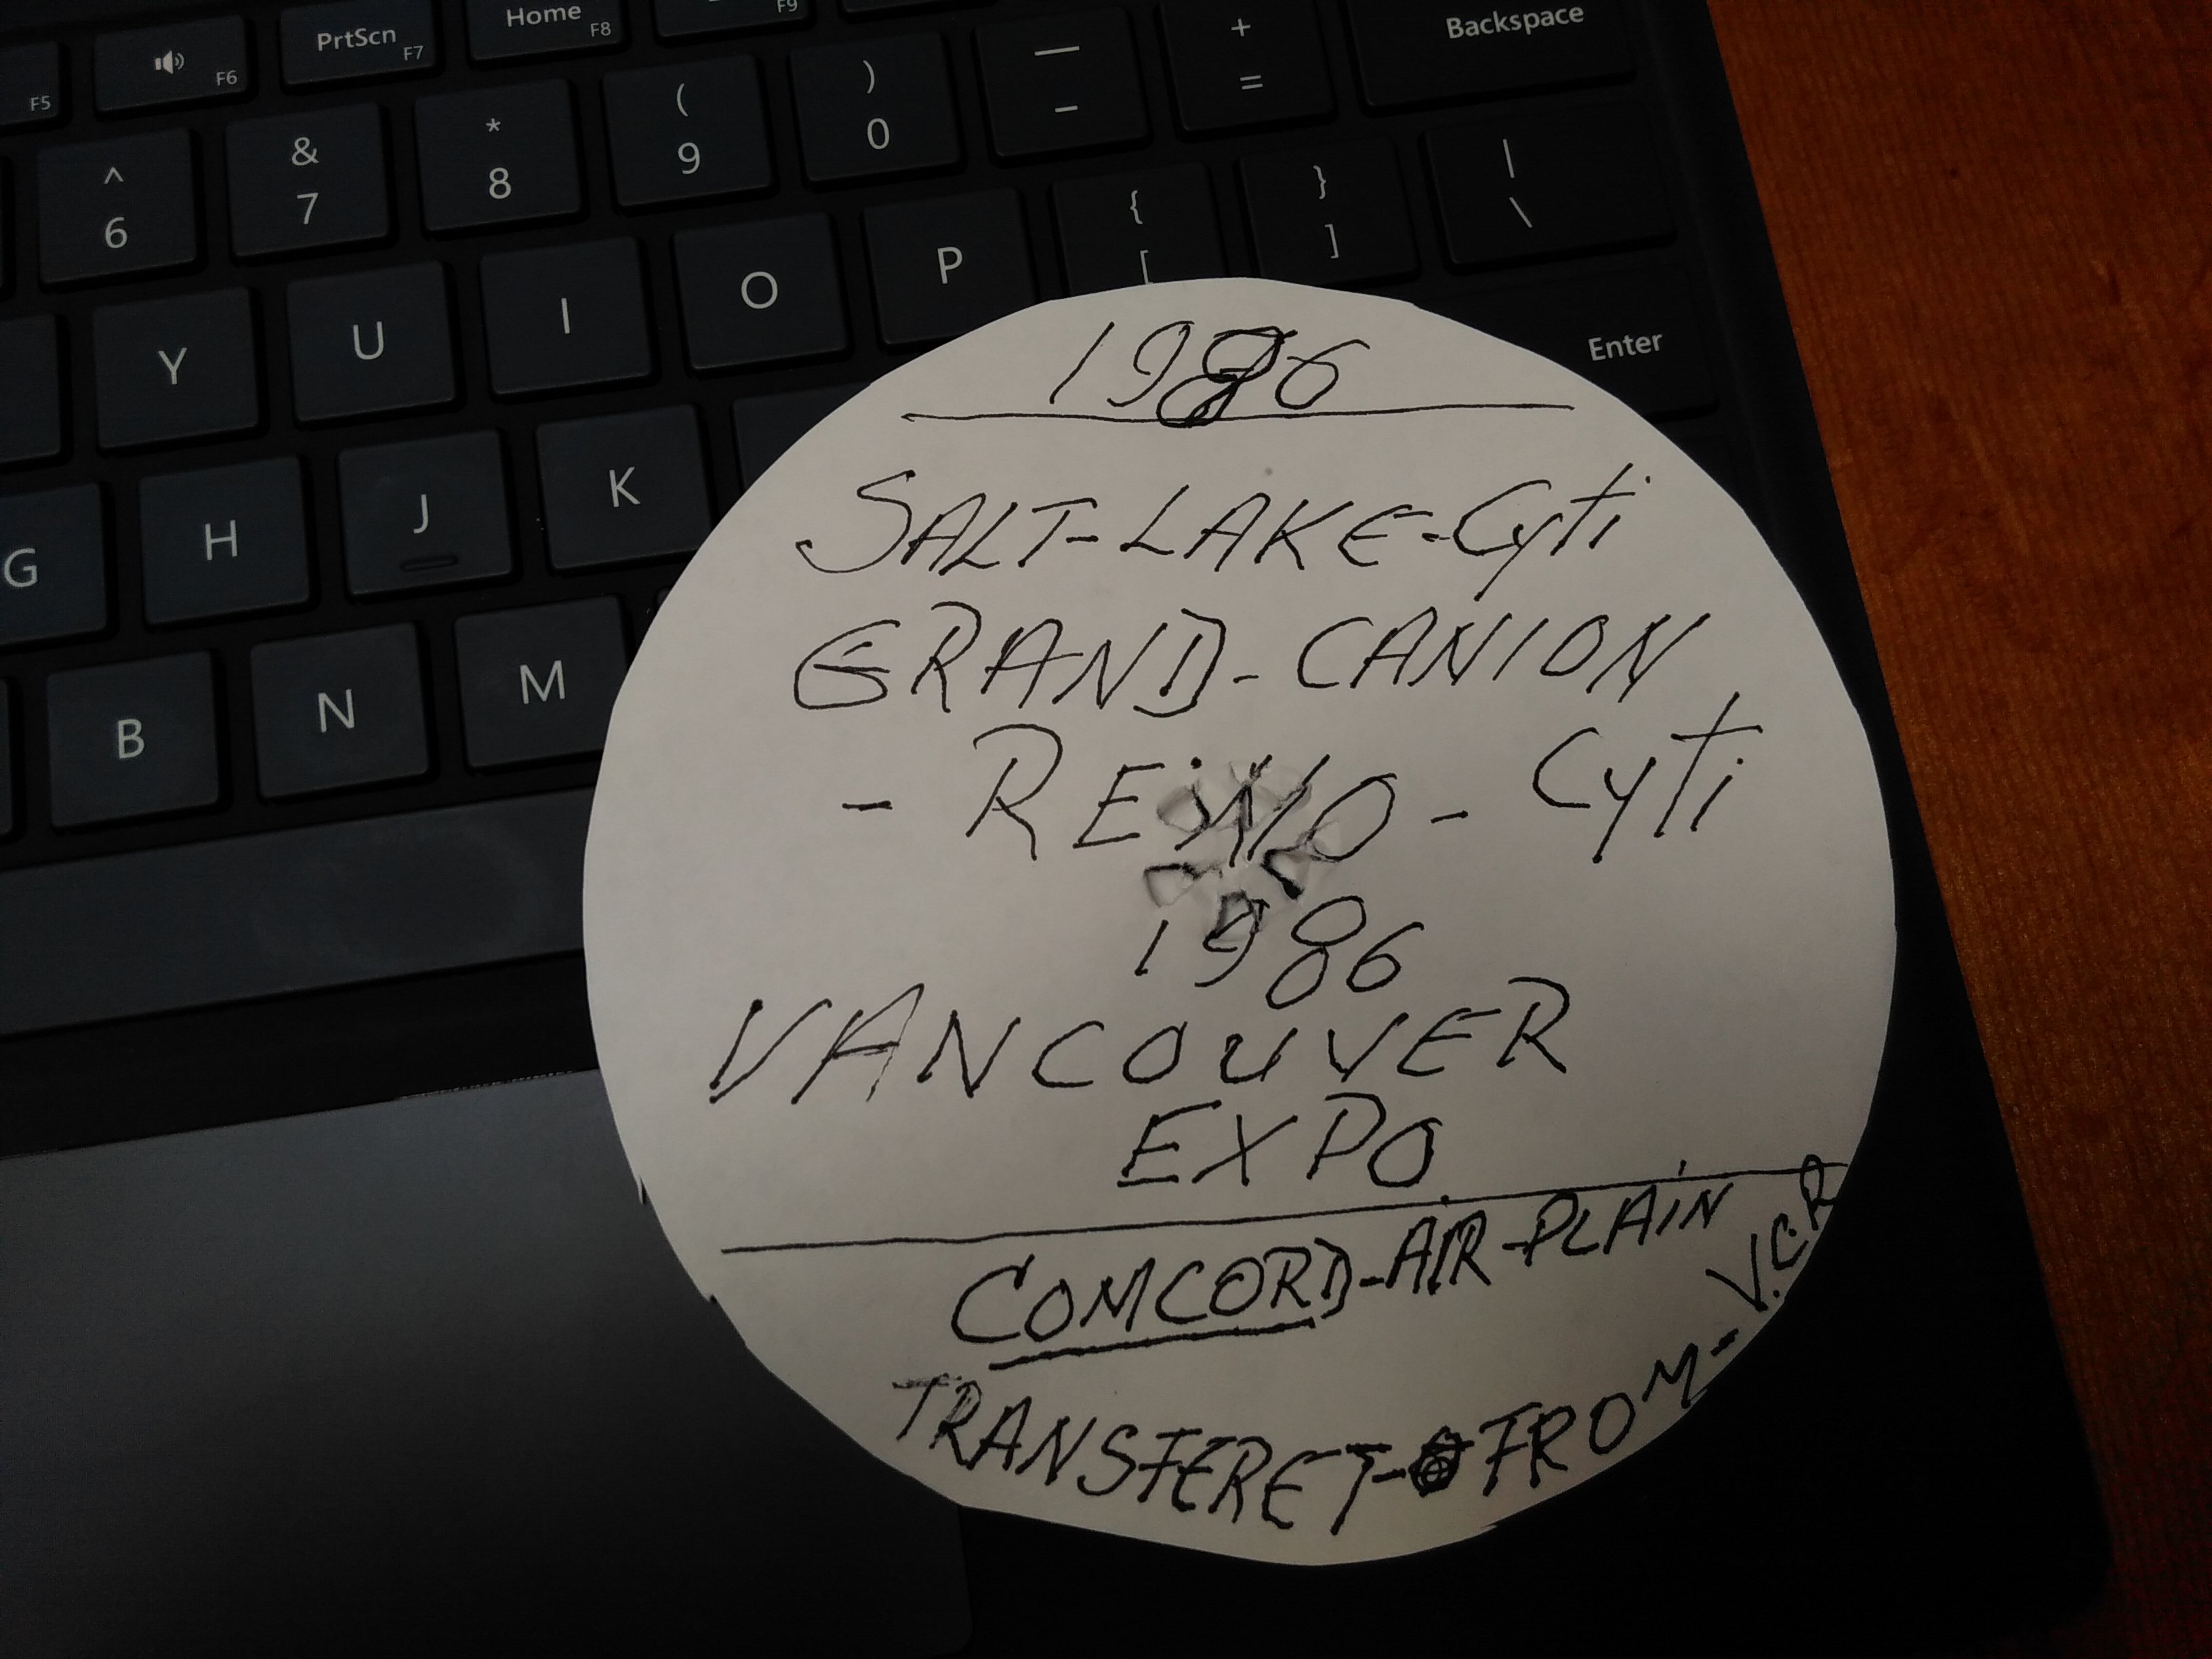 F5 F6 PrtScn F7 Home F8 F9
^ 6 & 7 * 8 ( 9 ) 0 — - + = Backspace
Y U I O P { [ } ] | \
G H J K Enter
B N M
1986
SALT-LAKE-Cyti
GRAND-CANION
- REiNO - Cyti
1986
VANCOUVER
EXPO.
COMCORD-AIR-PLAiN
TRANSFERET-FROM-V.C.R